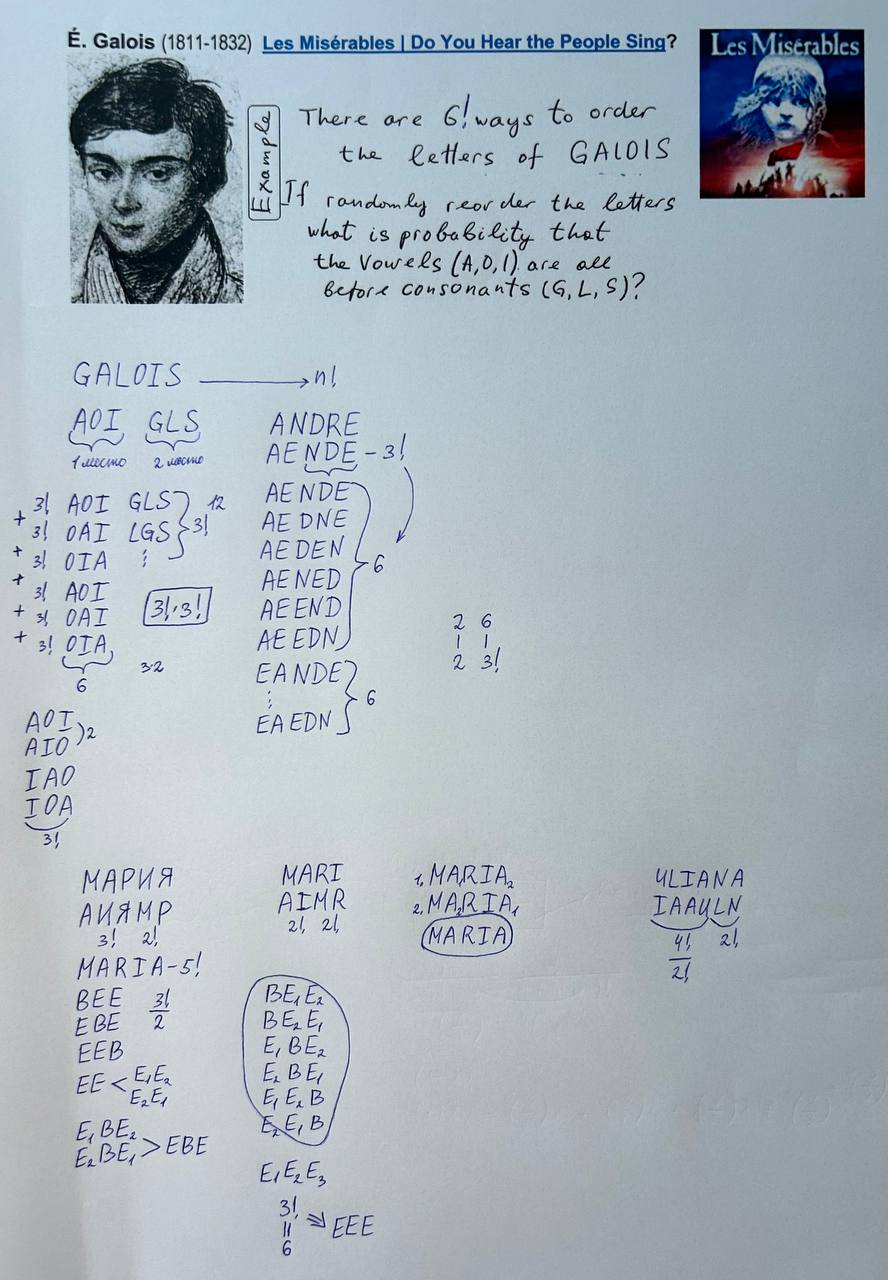 É. Galois (1811-1832) Les Misérables | Do You Hear the People Sing?
Les Misérables
Example
There are 6! ways to order
the letters of GALOIS
If randomly reorder the letters
what is probability that
the vowels (A,O,I) are all
before consonants (G,L,S)?
GALOIS → n!
AOI GLS
1 место 2 место
+ 3! AOI GLS } 12
+ 3! OAI LGS } 3!
+ 3! OIA ⋮
+ 3! AOI
+ 3! OAI 3!·3!
+ 3! OIA
6 3·2
AOI
AIO ) 2
IAO
IOA
3!
ANDRE
AENDE - 3!
AENDE
AEDNE
AEDEN
AENED
AEEND
AEEDN
6
EANDE
⋮
EAEDN
6
2 6
1 1
2 3!
МАРИЯ
АИЯМР
3! 2!
MARIA-5!
BEE 3!/2
EBE
EEB
EE < E₁E₂
E₂E₁
E₁BE₂
E₂BE₁ > EBE
MARI
AIMR
2! 2!
BE₁E₂
BE₂E₁
E₁BE₂
E₂BE₁
E₁E₂B
E₂E₁B
E₁E₂E₃
3! ⇒ EEE
=
6
1. MA₁RIA₂
2. MA₂RIA₁
MARIA
ULIANA
IAAULN
4!/2! 2!